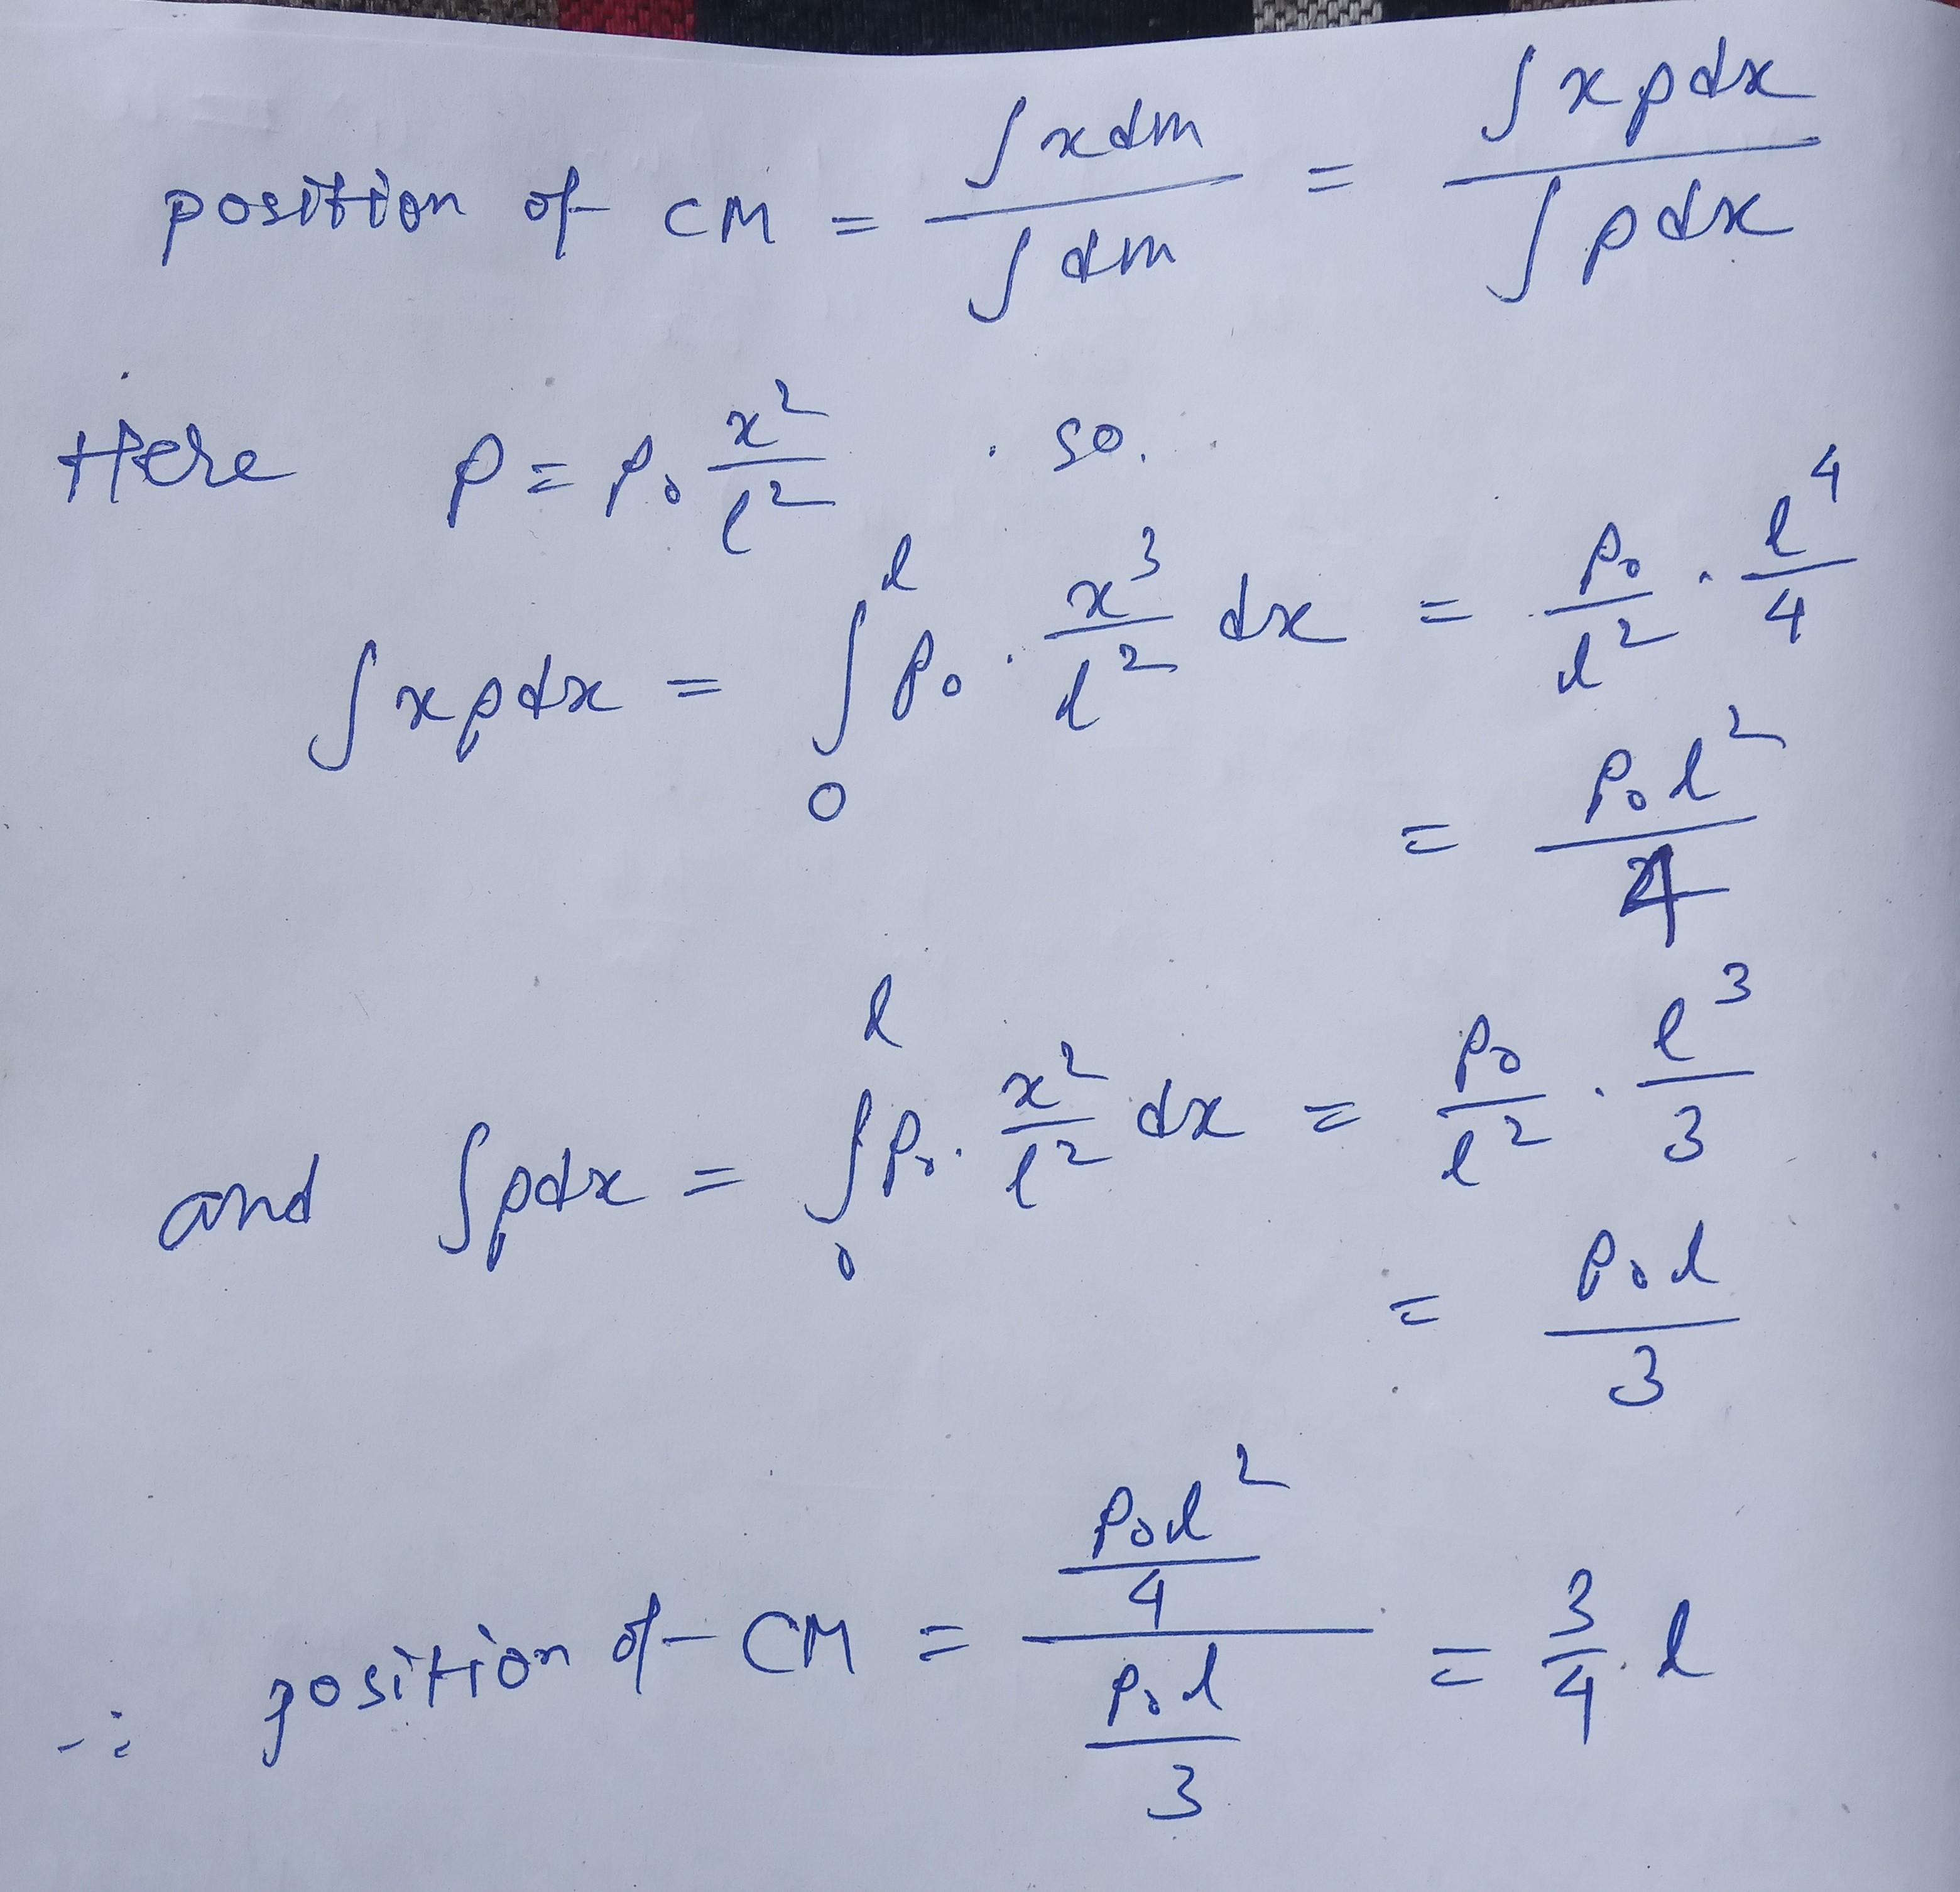 position of CM = ∫xdm / ∫dm = ∫xρdx / ∫ρdx
Here ρ = ρ₀ x²/l² . so.
∫xρdx = ∫₀ˡ ρ₀ . x³/l² dx = ρ₀/l² . l⁴/4
= ρ₀l²/4
and ∫ρdx = ∫₀ˡ ρ₀ . x²/l² dx = ρ₀/l² . l³/3
= ρ₀l/3
∴ position of CM = (ρ₀l²/4) / (ρ₀l/3) = 3/4 . l